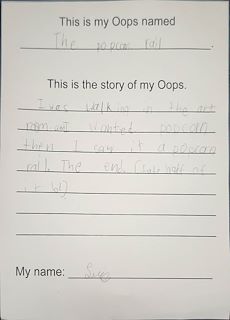 This is my Oops named
The popcorn rall.
This is the story of my Oops.
I was walking in the art
room and I wanted popcorn
then I saw it a popcorn
rall. The end (
of
it
My name: